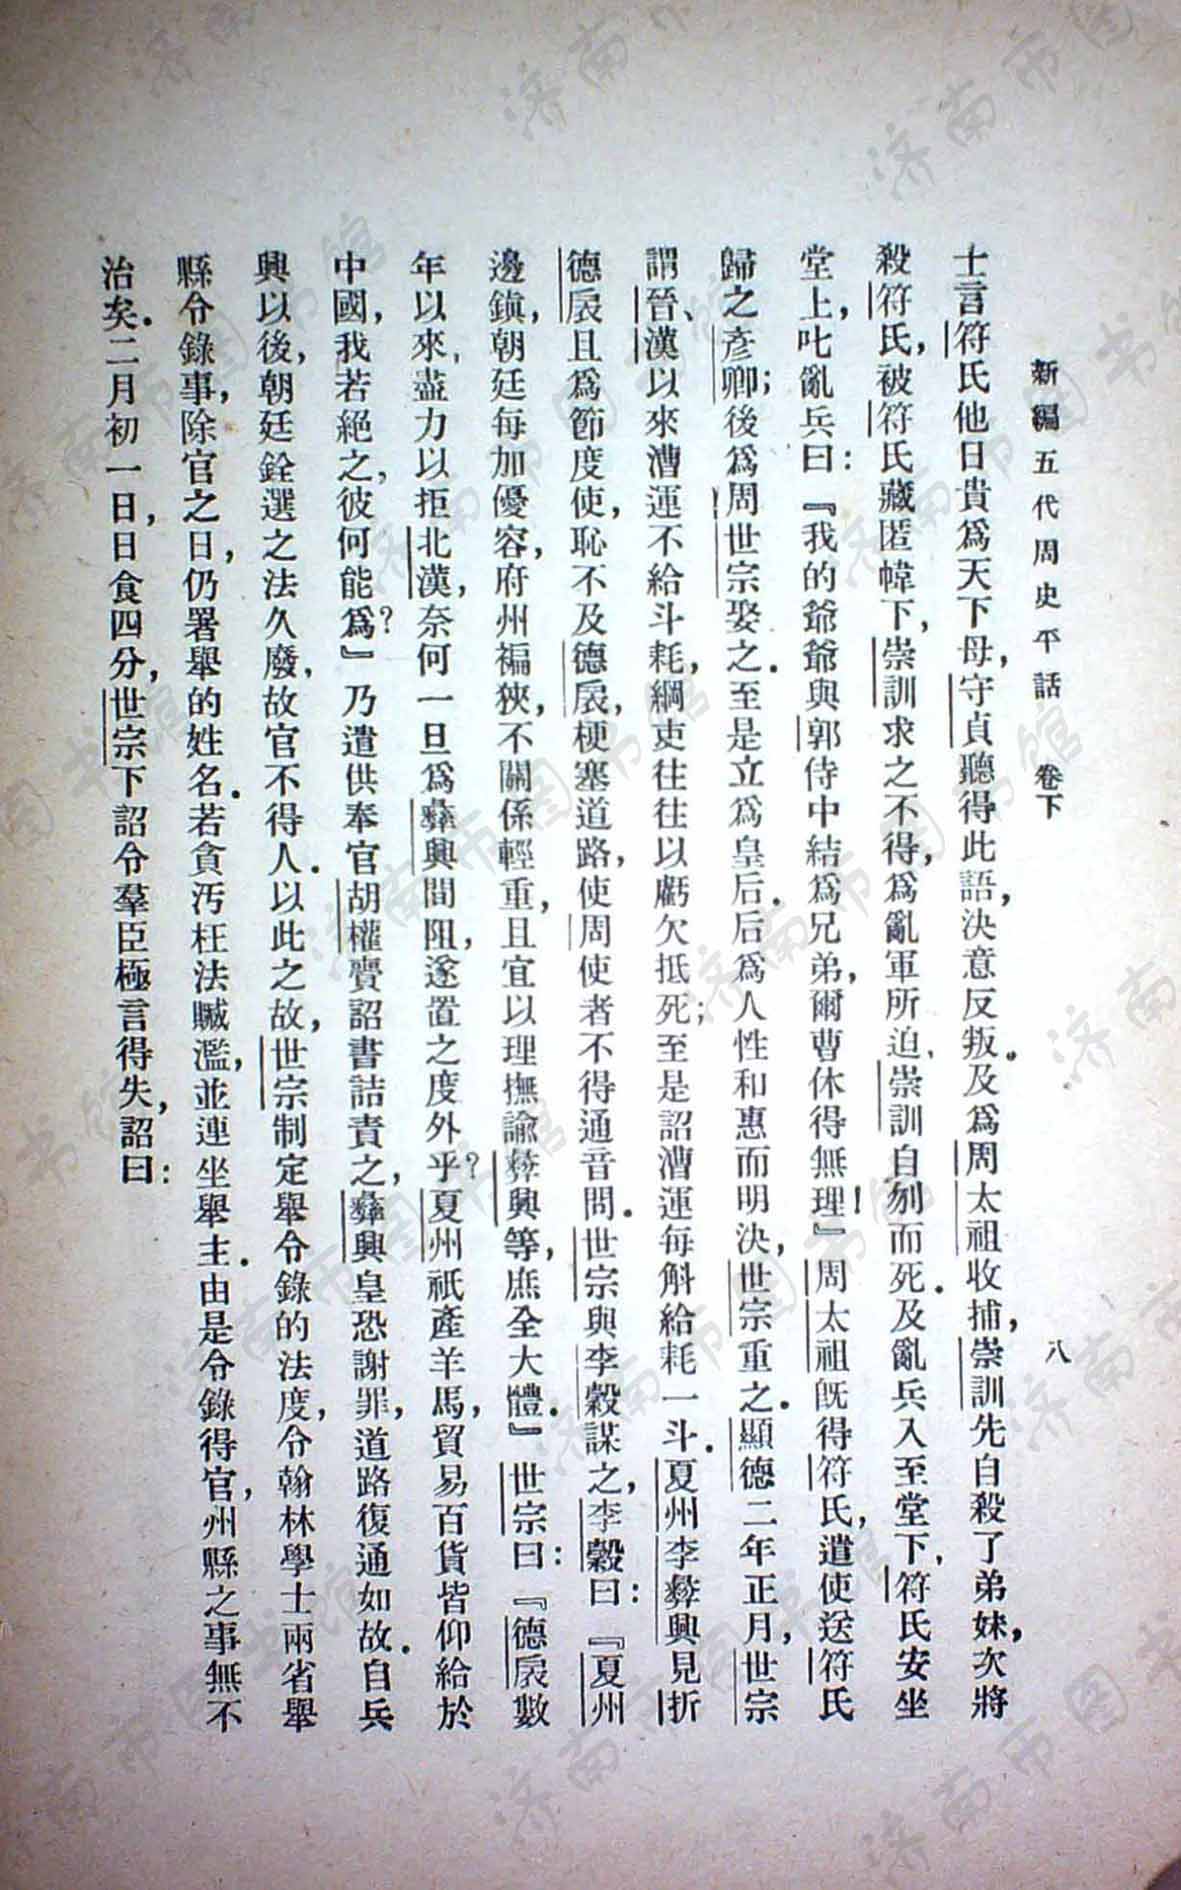 新編五代周史平話　卷下　八
士言符氏他日貴爲天下母，守貞聽得此語，決意反叛。及爲周太祖收捕，崇訓先自殺了弟妹，次將
殺符氏，被符氏藏匿幃下，崇訓求之不得，爲亂軍所迫，崇訓自刎而死。及亂兵入至堂下，符氏安坐
堂上，叱亂兵曰：『我的爺爺與郭侍中結爲兄弟，爾曹休得無理！』周太祖旣得符氏，遣使送符氏
歸之彥卿；後爲周世宗娶之。至是立爲皇后。后爲人性和惠而明決，世宗重之。顯德二年正月，世宗
謂晉、漢以來漕運不給斗耗，綱吏往往以虧欠抵死；至是詔漕運每斛給耗一斗。夏州李彝興見折
德扆且爲節度使，恥不及德扆，梗塞道路，使周使者不得通音問。世宗與李穀謀之，李穀曰：『夏州
邊鎮，朝廷每加優容，府州褊狹，不關係輕重，且宜以理撫諭彝興等，庶全大體。』世宗曰：『德扆數
年以來，盡力以拒北漢，奈何一旦爲彝興間阻，遂置之度外乎？夏州祇產羊馬，貿易百貨皆仰給於
中國，我若絕之，彼何能爲？』乃遣供奉官胡權賫詔書詰責之，彝興皇恐謝罪，道路復通如故。自兵
興以後，朝廷銓選之法久廢，故官不得人。以此之故，世宗制定舉令錄的法度，令翰林學士兩省舉
縣令錄事，除官之日，仍署舉的姓名。若貪汚枉法贓濫，並連坐舉主。由是令錄得官，州縣之事無不
治矣。二月初一日，日食四分，世宗下詔令羣臣極言得失，詔曰：
济南市图书馆